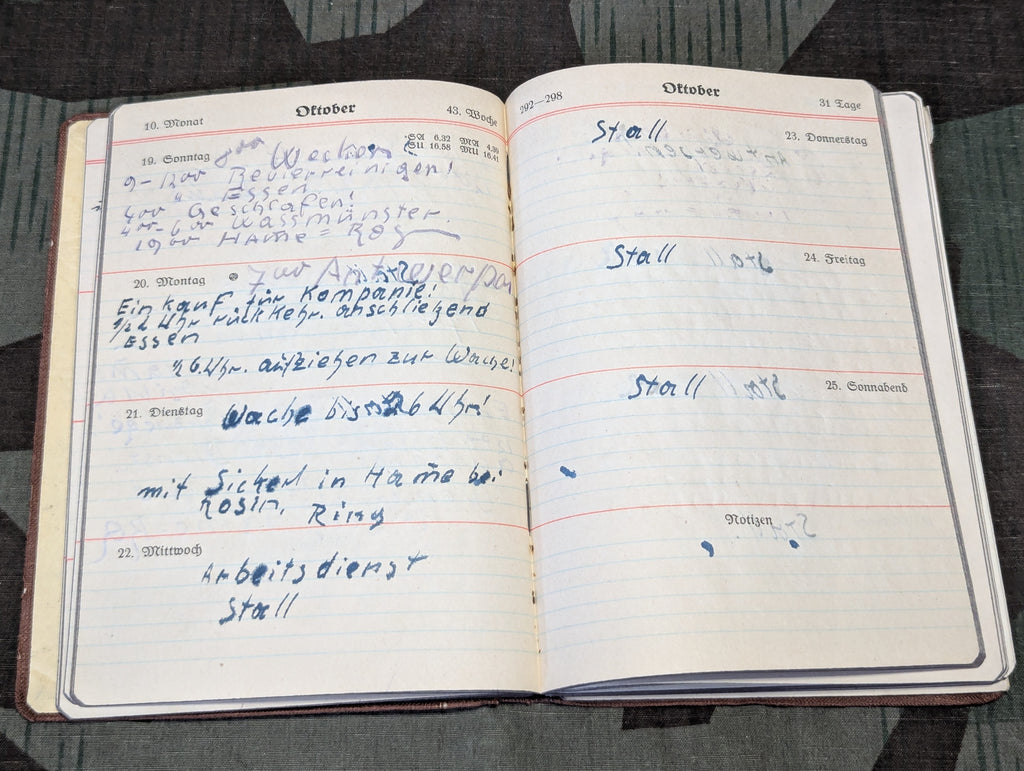 Oktober
10. Monat
43. Woche
19. Sonntag
SA 6.32 MA 4.39
SU 16.58 MU 16.41
Wecken
9-1200 Revierreinigen!
" Essen
400 Geschlafen!
400-600 Wassmünster.
1900 Hame =
20. Montag
700 Antwerpen
Einkauf für Kompanie!
1/2 2 Uhr rückkehr. anschliezend
Essen
26. Uhr. aufziehen zur Wache!
21. Dienstag
Wache bis 6 Uhr!
mit Sickerl in Hame bei
Rosin. Ring
22. Mittwoch
Arbeitsdienst
Stall
292—298
Oktober
31 Tage
Stall
23. Donnerstag
Stall
24. Freitag
Stall
25. Sonnabend
Notizen